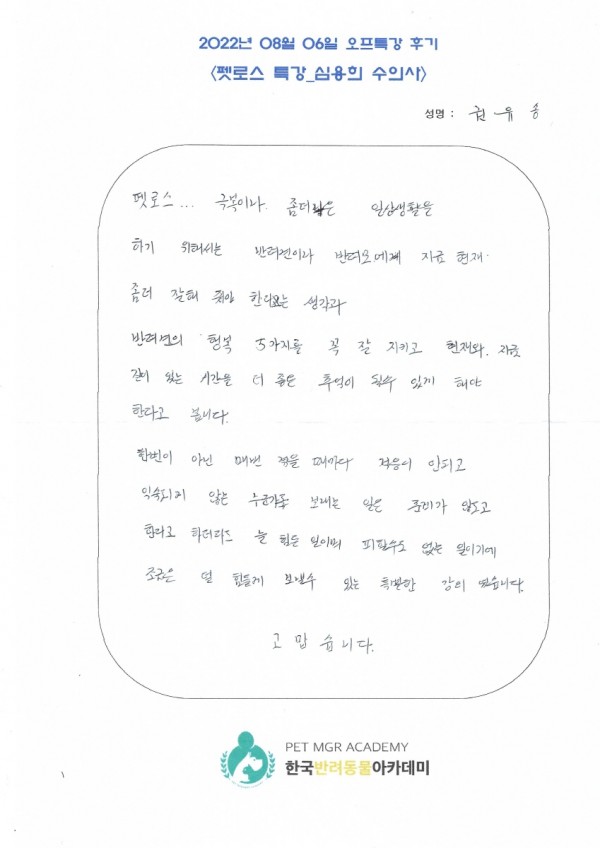 2022년 08월 06일 오프특강 후기
<펫로스 특강_심용희 수의사>
성명 : 권유송
펫로스... 극복이나. 좀더 나은 일상생활을
하기 위해서는 반려견이나 반려묘에게 지금 현재.
좀더 잘해 줘야 한다는 생각과
반려견의 행복 5가지를 꼭 잘 지키고 현재와. 지금
같이 있는 시간을 더 좋은 추억이 될수 있게 해야
한다고 봅니다.
한번이 아닌 매번 겪을 때마다 적응이 안되고
익숙되지 않는 누군가를 보내는 일은 준비가
한다고 하더라도 늘 힘든 일이며 피할수도 없는 일이기에
조금은 덜 힘들게 보낼수 있는 특별한 강의 였습니다.
고맙습니다.
PET MGR ACADEMY
한국반려동물아카데미